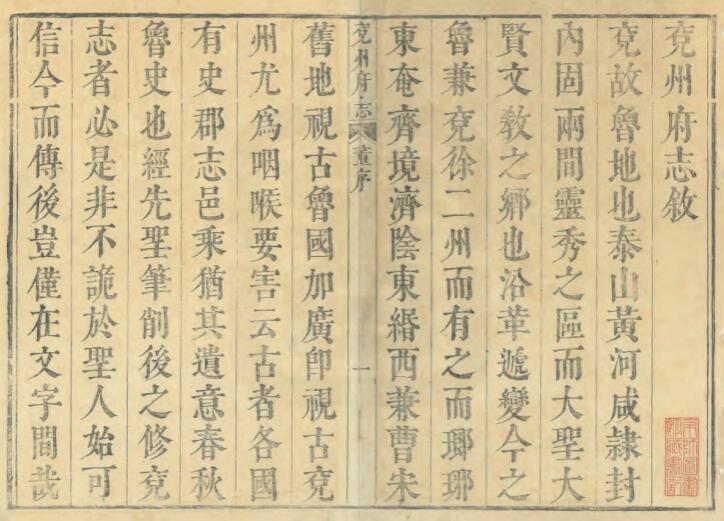 兗州府志敘
兗故魯地也泰山黃河咸隷封
內固兩間靈秀之區而大聖大
賢文教之鄉也沿革遞變今之
魯兼兗徐二州而有之而瑯琊
東奄齊境濟陰東緡西兼曹宋
兗州府志
董序
一
舊地視古魯國加廣卽視古兗
州尤爲咽喉要害云古者各國
有史郡志邑乘猶其遺意春秋
魯史也經先聖筆削後之修兗
志者必是非不詭於聖人始可
信今而傳後豈僅在文字間哉